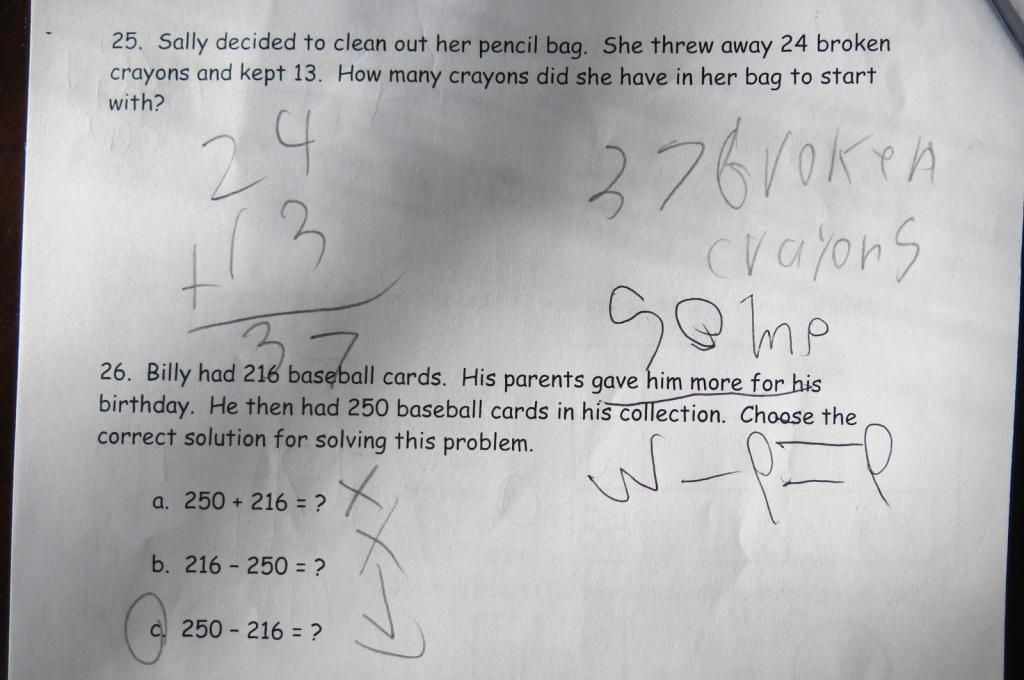 25. Sally decided to clean out her pencil bag. She threw away 24 broken
crayons and kept 13. How many crayons did she have in her bag to start
with?
24
+13
37
37 broken
crayons
some
26. Billy had 216 baseball cards. His parents gave him more for his
birthday. He then had 250 baseball cards in his collection. Choose the
correct solution for solving this problem.
W-P=P
a. 250 + 216 = ? X
b. 216 - 250 = ? X
c. 250 - 216 = ?